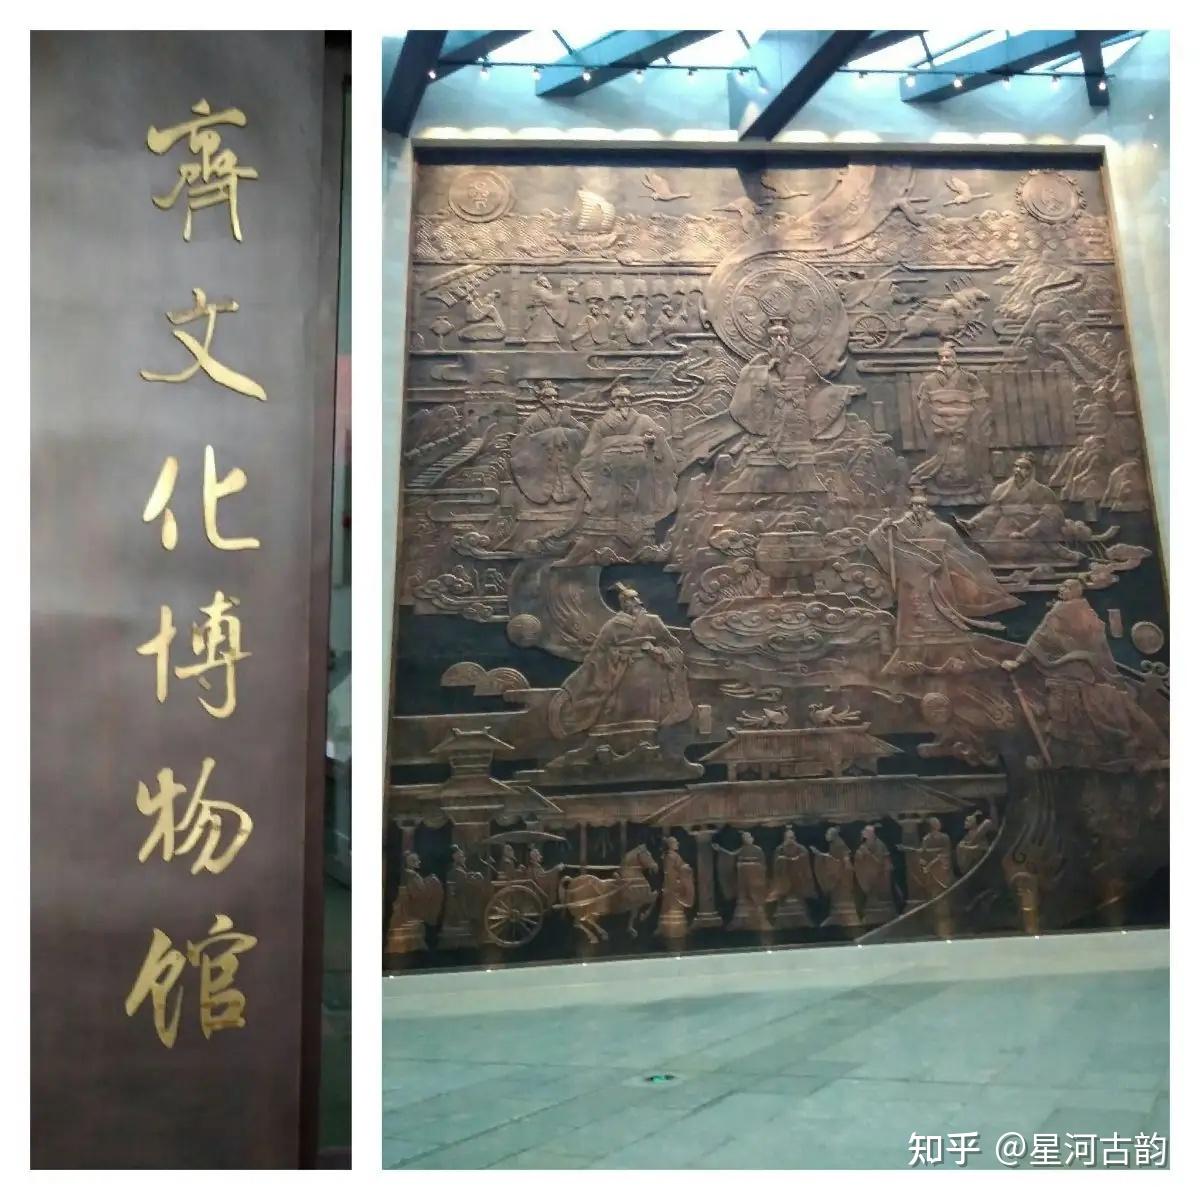 齊文化博物馆
知乎 @星河古韵